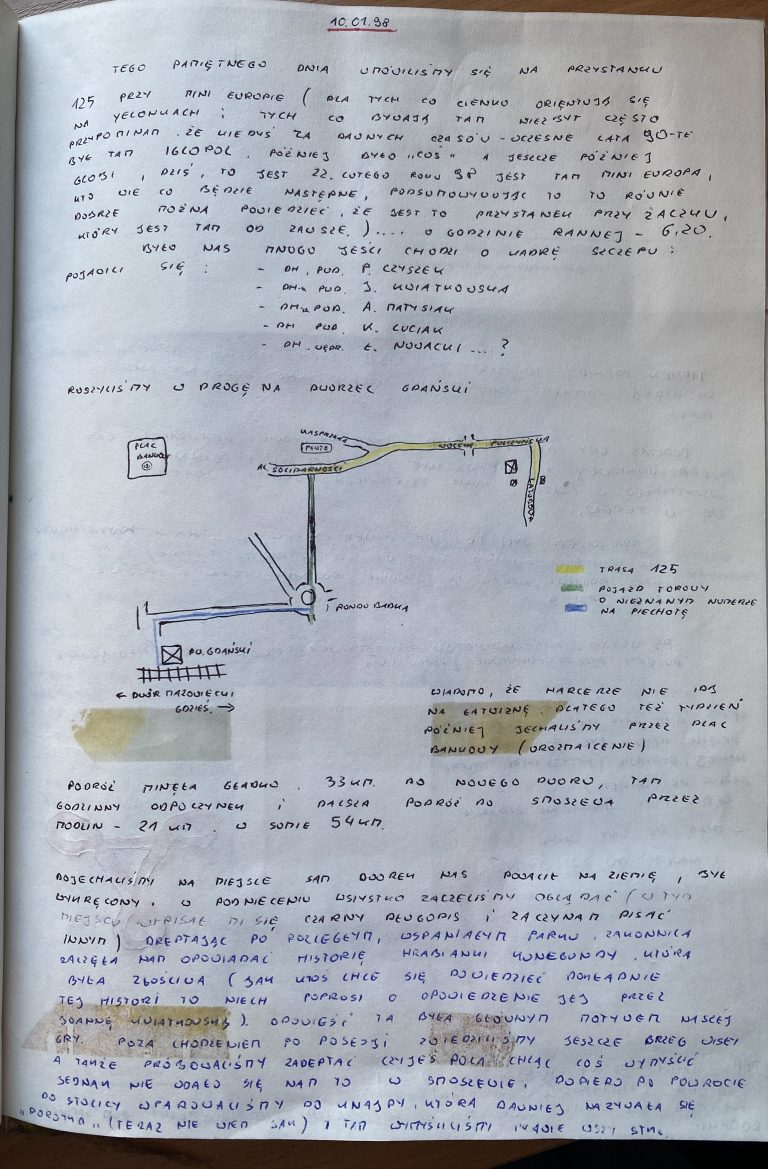 10.01.98
TEGO PAMIĘTNEGO DNIA UMÓWILIŚMY SIĘ NA PRZYSTANKU
125 PRZY MINI EUROPIE ( DLA TYCH CO CIENKO ORIENTUJĄ SIĘ
NA YELONKACH I TYCH CO BYWAJĄ TAM NIEZBYT CZĘSTO
PRZYPOMINAM, ŻE KIEDYŚ ZA DAWNYCH CZASÓW - WCZESNE LATA 90-TE
BYŁ TAM IGLOPOL, PÓŹNIEJ BYŁO „COŚ" A JESZCZE PÓŹNIEJ
GLOBI, DZIŚ, TO JEST 22. LUTEGO ROKU 98 JEST TAM MINI EUROPA,
KTO WIE CO BĘDZIE NASTĘPNE, PODSUMOWUJĄC TO TO RÓWNIE
DOBRZE MOŻNA POWIEDZIEĆ, ŻE JEST TO PRZYSTANEK PRZY ŻACZKU,
KTÓRY JEST TAM OD ZAWSZE.).... O GODZINIE RANNEJ - 6.20.
BYŁO NAS MNOGO JEŚCI CHODZI O KADRĘ SZCZEPU:
POJAWILI SIĘ : - DH. PWD. P. CZYSZEK
- DH-A PWD. J. KWIATKOWSKA
- DH-A PWD. A. MATYSIAK
- DH PWD. K. LUCIAK
- DH. WĘDR. Ł. NOWACKI ... ?
RUSZYLIŚMY W DROGĘ NA DWORZEC GDAŃSKI
PLAC
BANKOWY
KASPRZAKA
AL. SOLIDARNOŚCI
WOLSKA
POŁCZYŃSKA
LAZUROWA
RONDO BABKA
DW. GDAŃSKI
TRASA 125
POJAZD TOROWY
O NIEZNANYM NUMERZE
NA PIECHOTĘ
← DWÓR MAZOWIECKI
GDZIEŚ →
WIADOMO, ŻE HARCERZE NIE IDĄ
NA ŁATWIZNĘ DLATEGO TEŻ TYDZIEŃ
PÓŹNIEJ JECHALIŚMY PRZEZ PLAC
BANKOWY (UROZMAICENIE)
PODRÓŻ MINĘŁA GŁADKO. 33 KM. DO NOWEGO DWORU, TAM
GODZINNY ODPOCZYNEK I DALSZA PODRÓŻ DO SMOSZEWA PRZEZ
MODLIN - 21 KM. W SUMIE 54 KM.
DOJECHALIŚMY NA MIEJSCE SAM DWOREK NAS POWALIŁ NA ZIEMIĘ, BYŁ
WYKRĘCONY. W PODNIECENIU WSZYSTKO ZACZELIŚMY OGLĄDAĆ (W TYM
MIEJSCU WYPISAŁ MI SIĘ CZARNY DŁUGOPIS I ZACZYNAM PISAĆ
INNYM) DREPTAJĄC PO POLLEGŁYM, WSPANIAŁYM PARKU. ZAKONNICA
ZACZĘŁA NAM OPOWIADAĆ HISTORIĘ HRABIANKI KUNEGUNDY, KTÓRA
BYŁA ZŁOŚLIWA (JAK KTOŚ CHCE SIĘ DOWIEDZIEĆ DOKŁADNIE
TEJ HISTORI TO NIECH POPROSI O OPOWIEDZENIE JEJ PRZEZ
JOANNĘ KWIATKOWSKĄ). OPOWIEŚĆ TA BYŁA GŁÓWNYM MOTYWEM NASZEJ
GRY. POZA CHODZENIEM PO POSESJI ZWIEDZILIŚMY JESZCZE BRZEG WISŁY
A TAKŻE PRÓBOWALIŚMY ZADEPTAĆ CZYJEŚ POLA, CHCĄC COŚ WYMYŚLIĆ
JEDNAK NIE UDAŁO SIĘ NAM TO W SMOSZEWIE, DOPIERO PO POWROCIE
DO STOLICY WPAROWALIŚMY DO KNAJPY, KTÓRA DAWNIEJ NAZYWAŁA SIĘ
(TERAZ NIE WIEM JAK) I TAM WYMYŚLILIŚMY